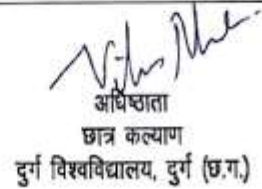 अधिष्ठाता
छात्र कल्याण
दुर्ग विश्वविद्यालय, दुर्ग (छ.ग.)